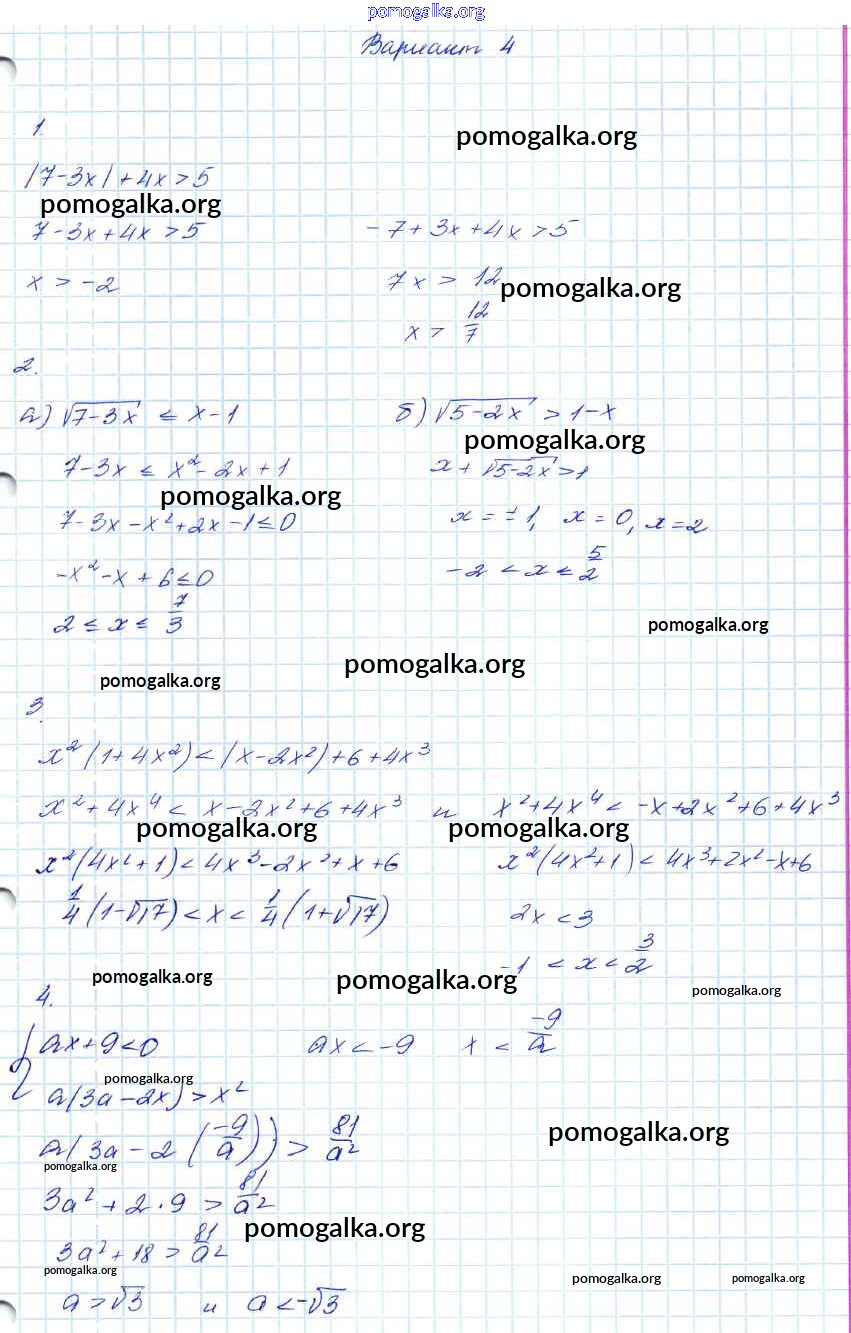 pomogalka.org
Вариант 4
pomogalka.org
1.
|7-3x|+4x>5
pomogalka.org
7-3x+4x>5 -7+3x+4x>5
x>-2 7x>12
pomogalka.org
x>12/7
2.
а) √(7-3x) ≤ x-1 б) √(5-2x) > 1-x
pomogalka.org
7-3x ≤ x²-2x+1 x+√(5-2x)>1
pomogalka.org
7-3x-x²+2x-1≤0 x=±1, x=0, x=2
-x²-x+6≤0 -2<x≤5/2
2≤x≤7/3
pomogalka.org
pomogalka.org
pomogalka.org
3.
x²(1+4x²)<|x-2x²|+6+4x³
x²+4x⁴<x-2x²+6+4x³ и x²+4x⁴<-x+2x²+6+4x³
pomogalka.org pomogalka.org
x²(4x²+1)<4x³-2x²+x+6 x²(4x²+1)<4x³+2x²-x+6
1/4(1-√17)<x<1/4(1+√17) 2x<3
-1<x<3/2
pomogalka.org pomogalka.org pomogalka.org
4.
{ax+9<0 ax<-9 x<-9/a
pomogalka.org
a(3a-2x)>x²
pomogalka.org
a(3a-2(-9/a))>81/a²
pomogalka.org
3a²+2·9>81/a²
pomogalka.org
3a²+18>81/a²
pomogalka.org pomogalka.org pomogalka.org
a>√3 и a<-√3